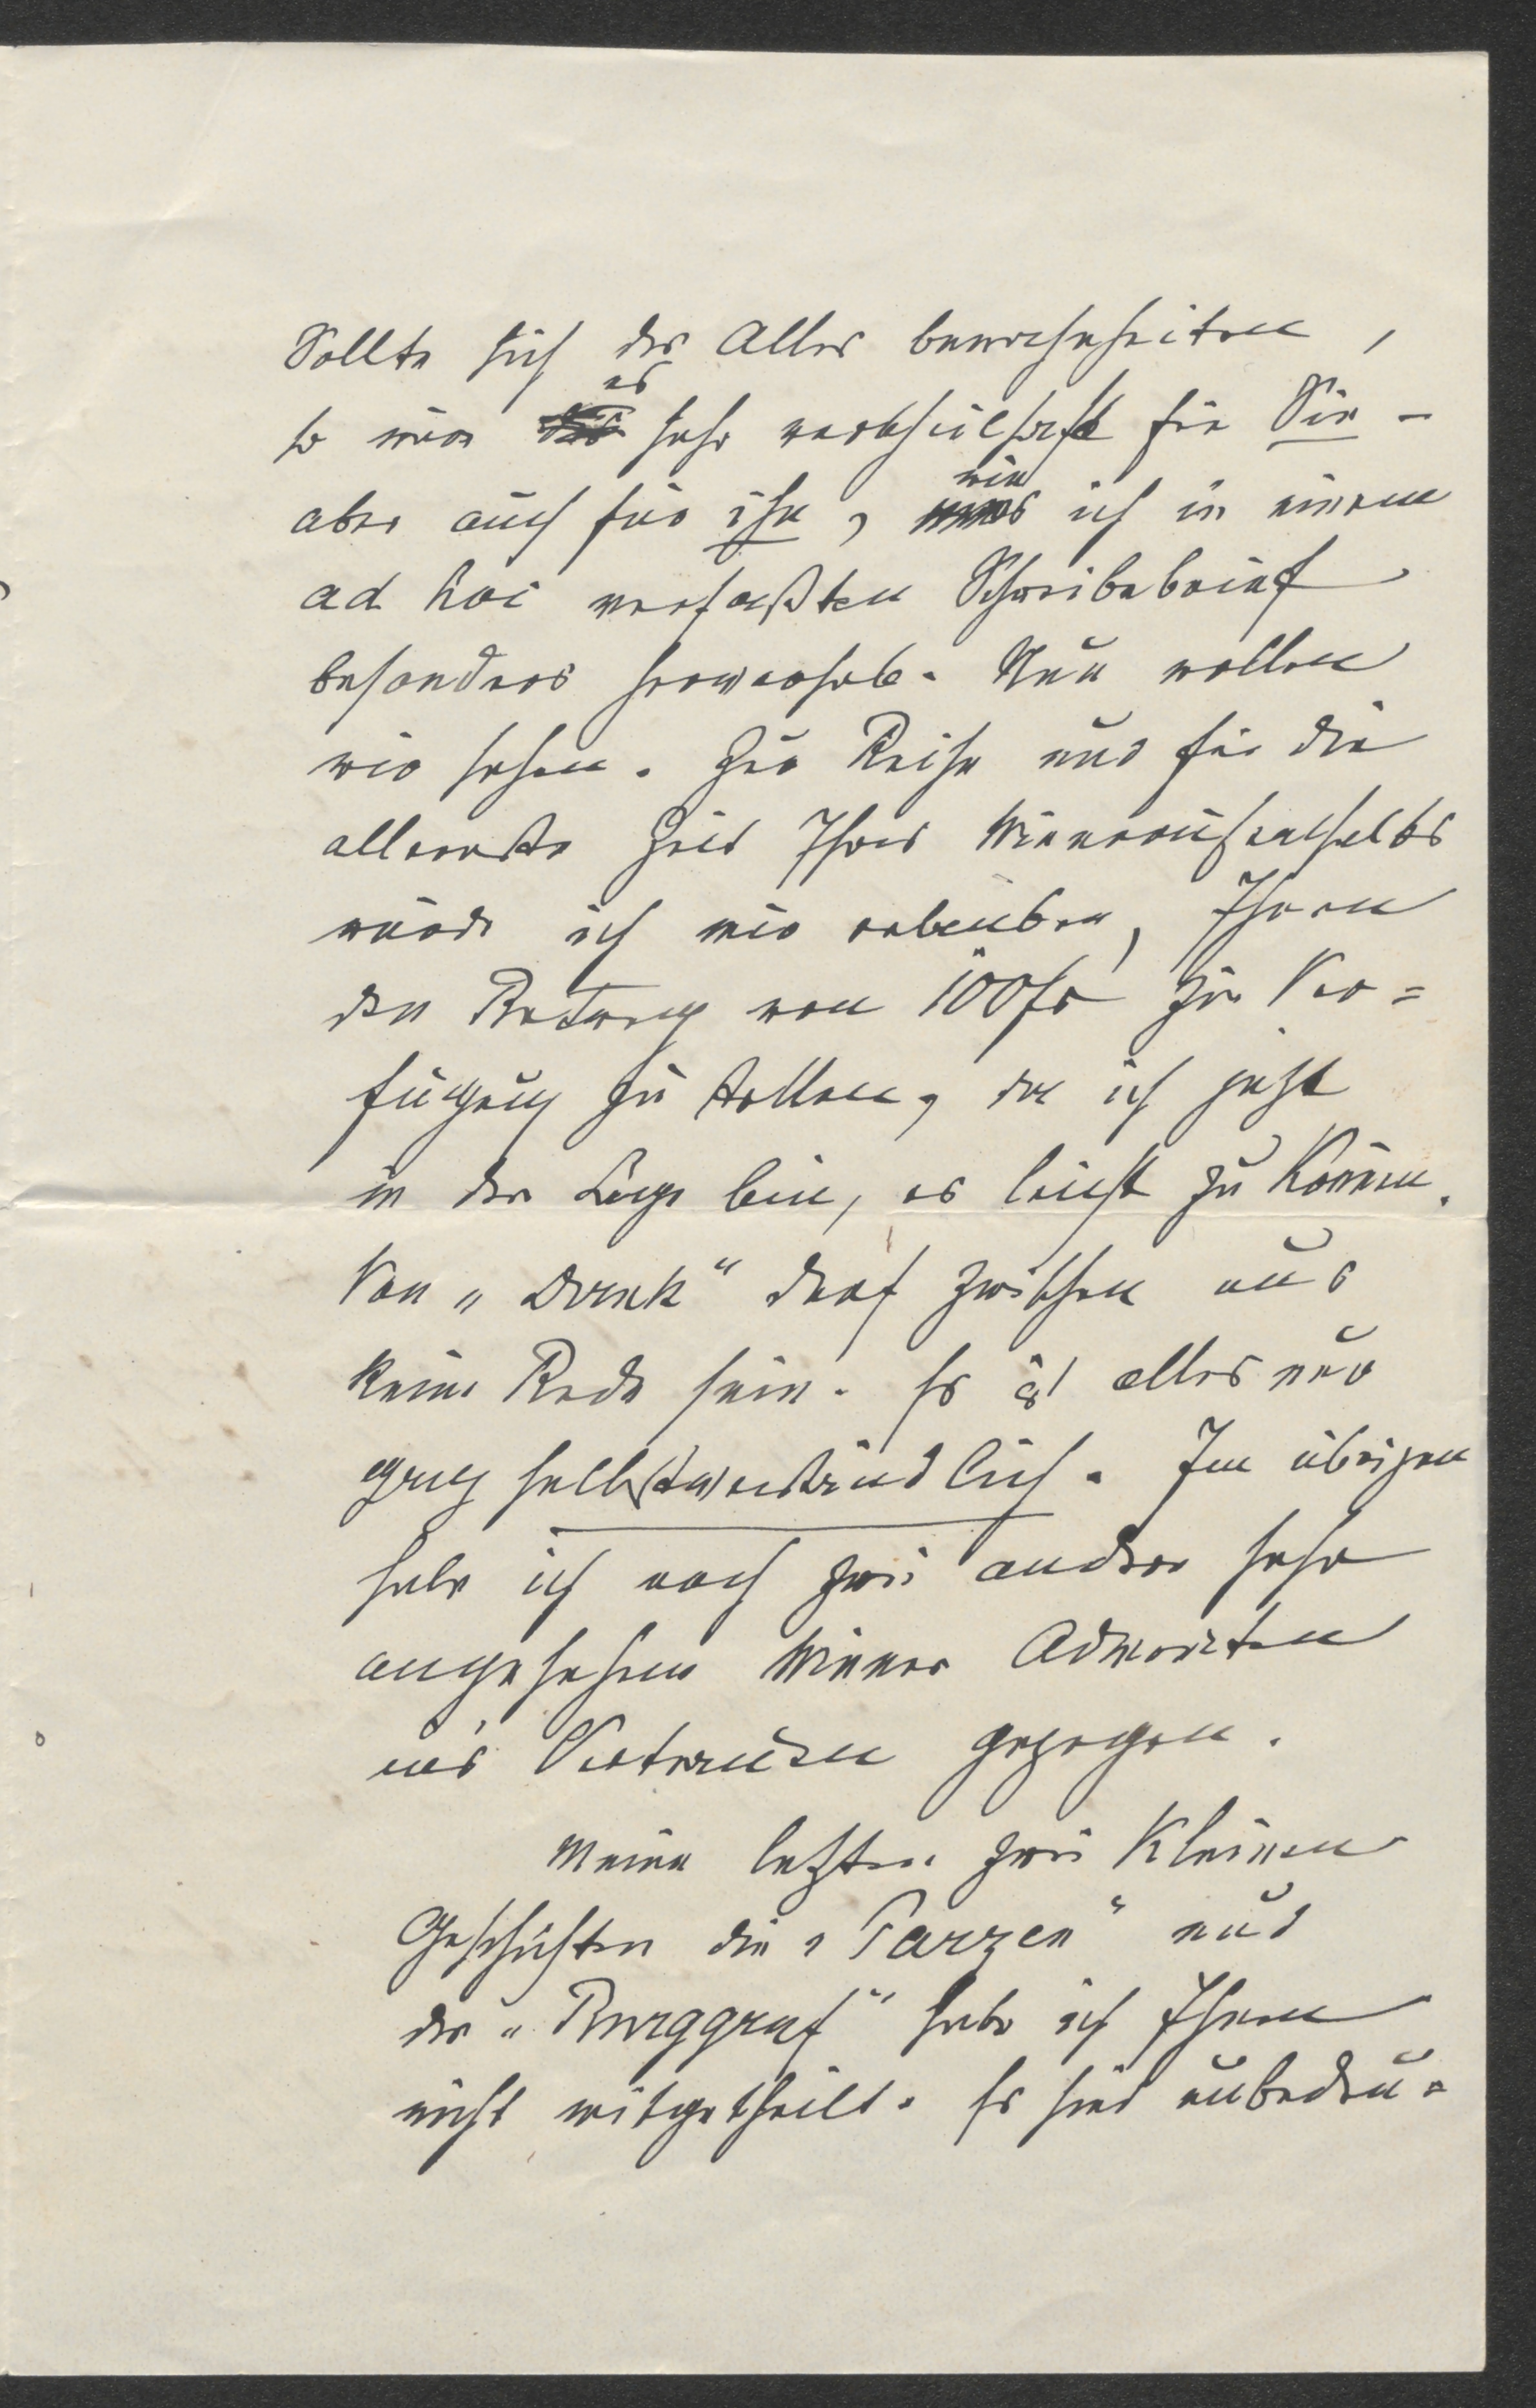 Sollte sich das Alles bewahrheiten,
so wäre es sehr vortheilhaft für Sie –
aber auch für ihn, wie ich in einem
ad hoc verfaßten Schreibebrief
besonders hervorhob. Nun wollen
wir sehen. Zur Reise und für die
allererste Zeit Ihres Wieneraufenthalts
würde ich mir erlauben, Ihnen
den Betrag von 100 fr zur Ver=
fügung zu stellen, da ich jetzt
in der Lage bin, es leicht zu können.
Von „Dank“ darf zwischen uns
keine Rede sein. Es ist alles nur
ganz selbstverständlich. Im übrigen
habe ich noch zwei andere sehr
angesehene Wiener Advocaten
in's Vertrauen gezogen.
Meine letzten zwei kleinen
Geschichten die „Parzen“ und
der „Burggraf“ habe ich Ihnen
nicht mitgetheilt. Es sind unbedeu=